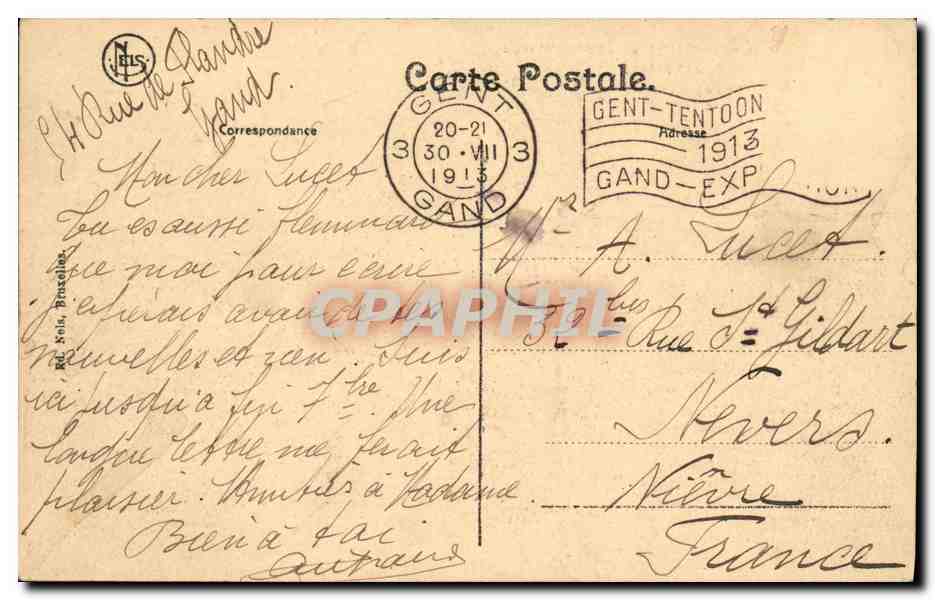 NELS
Carte Postale.
54 Rue de Flandre
Gand.
Correspondance
Adresse
GENT
3 20-21 3
30 · VII
1913
GAND
GENT-TENTOON
1913
GAND-EXP
Mon cher Lucet
Tu es aussi
que moi pour écrire
j'espérais avoir de tes
nouvelles et rien. Suis
ici jusqu'à fin 7bre. Une
longue lettre me ferait
plaisir. Amitiés à Madame.
Bien à toi
Mr A. Lucet.
32bis Rue St Gildart
Nevers.
Nièvre
France
Ed. Nels, Bruxelles.
CPAPHIL